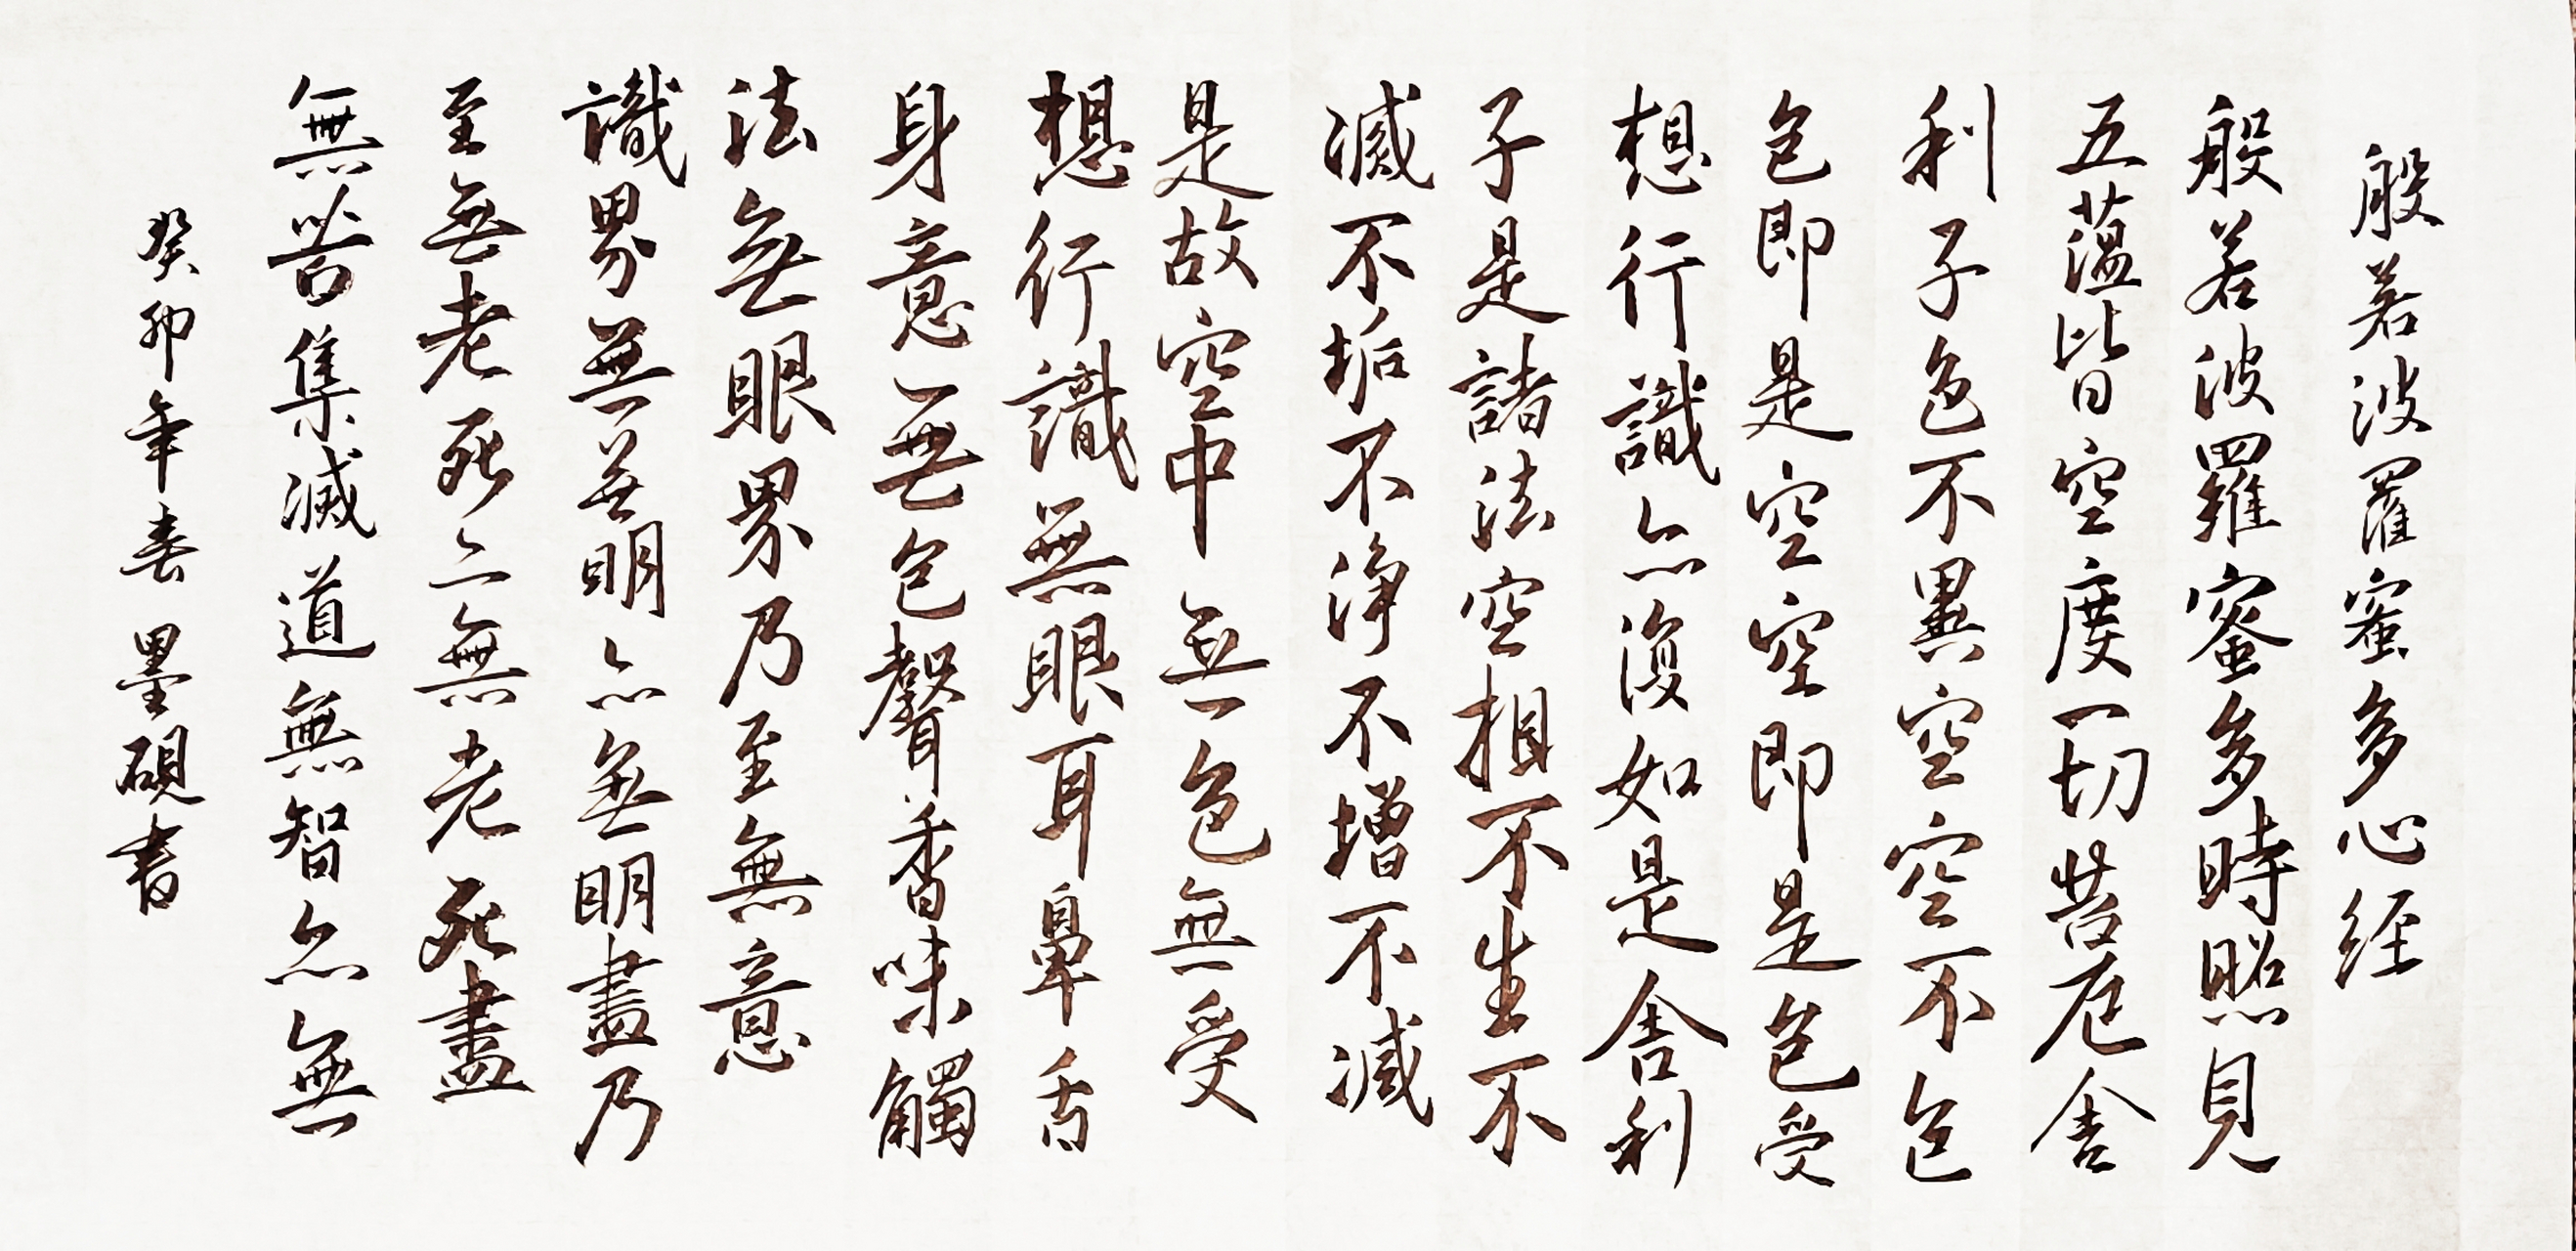 般若波羅蜜多心経
般若波羅蜜多時照見
五蘊皆空度一切苦厄舍
利子色不異空空不色
色即是空空即是色受
想行識亦復如是舍利
子是諸法空相不生不
滅不垢不淨不增不減
是故空中無色無受
想行識無眼耳鼻舌
身意無色聲香味觸
法無眼界乃至無意
識界無無明亦無明盡乃
至無老死亦無老死盡
無苦集滅道無智亦無
癸卯年春 墨硯書